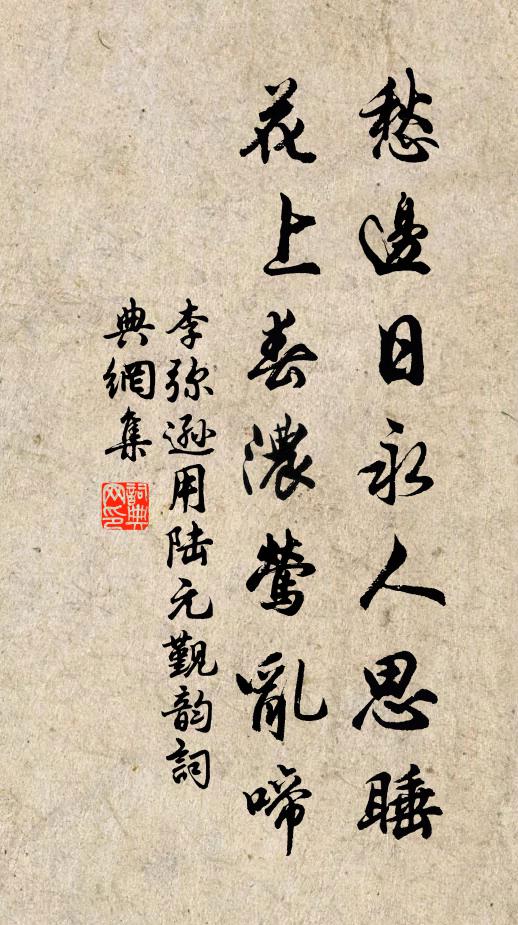 愁邊日永人思睡
花上春濃鶯亂啼
李弥遜用陆元觐韵詞
典網集
詞典网印